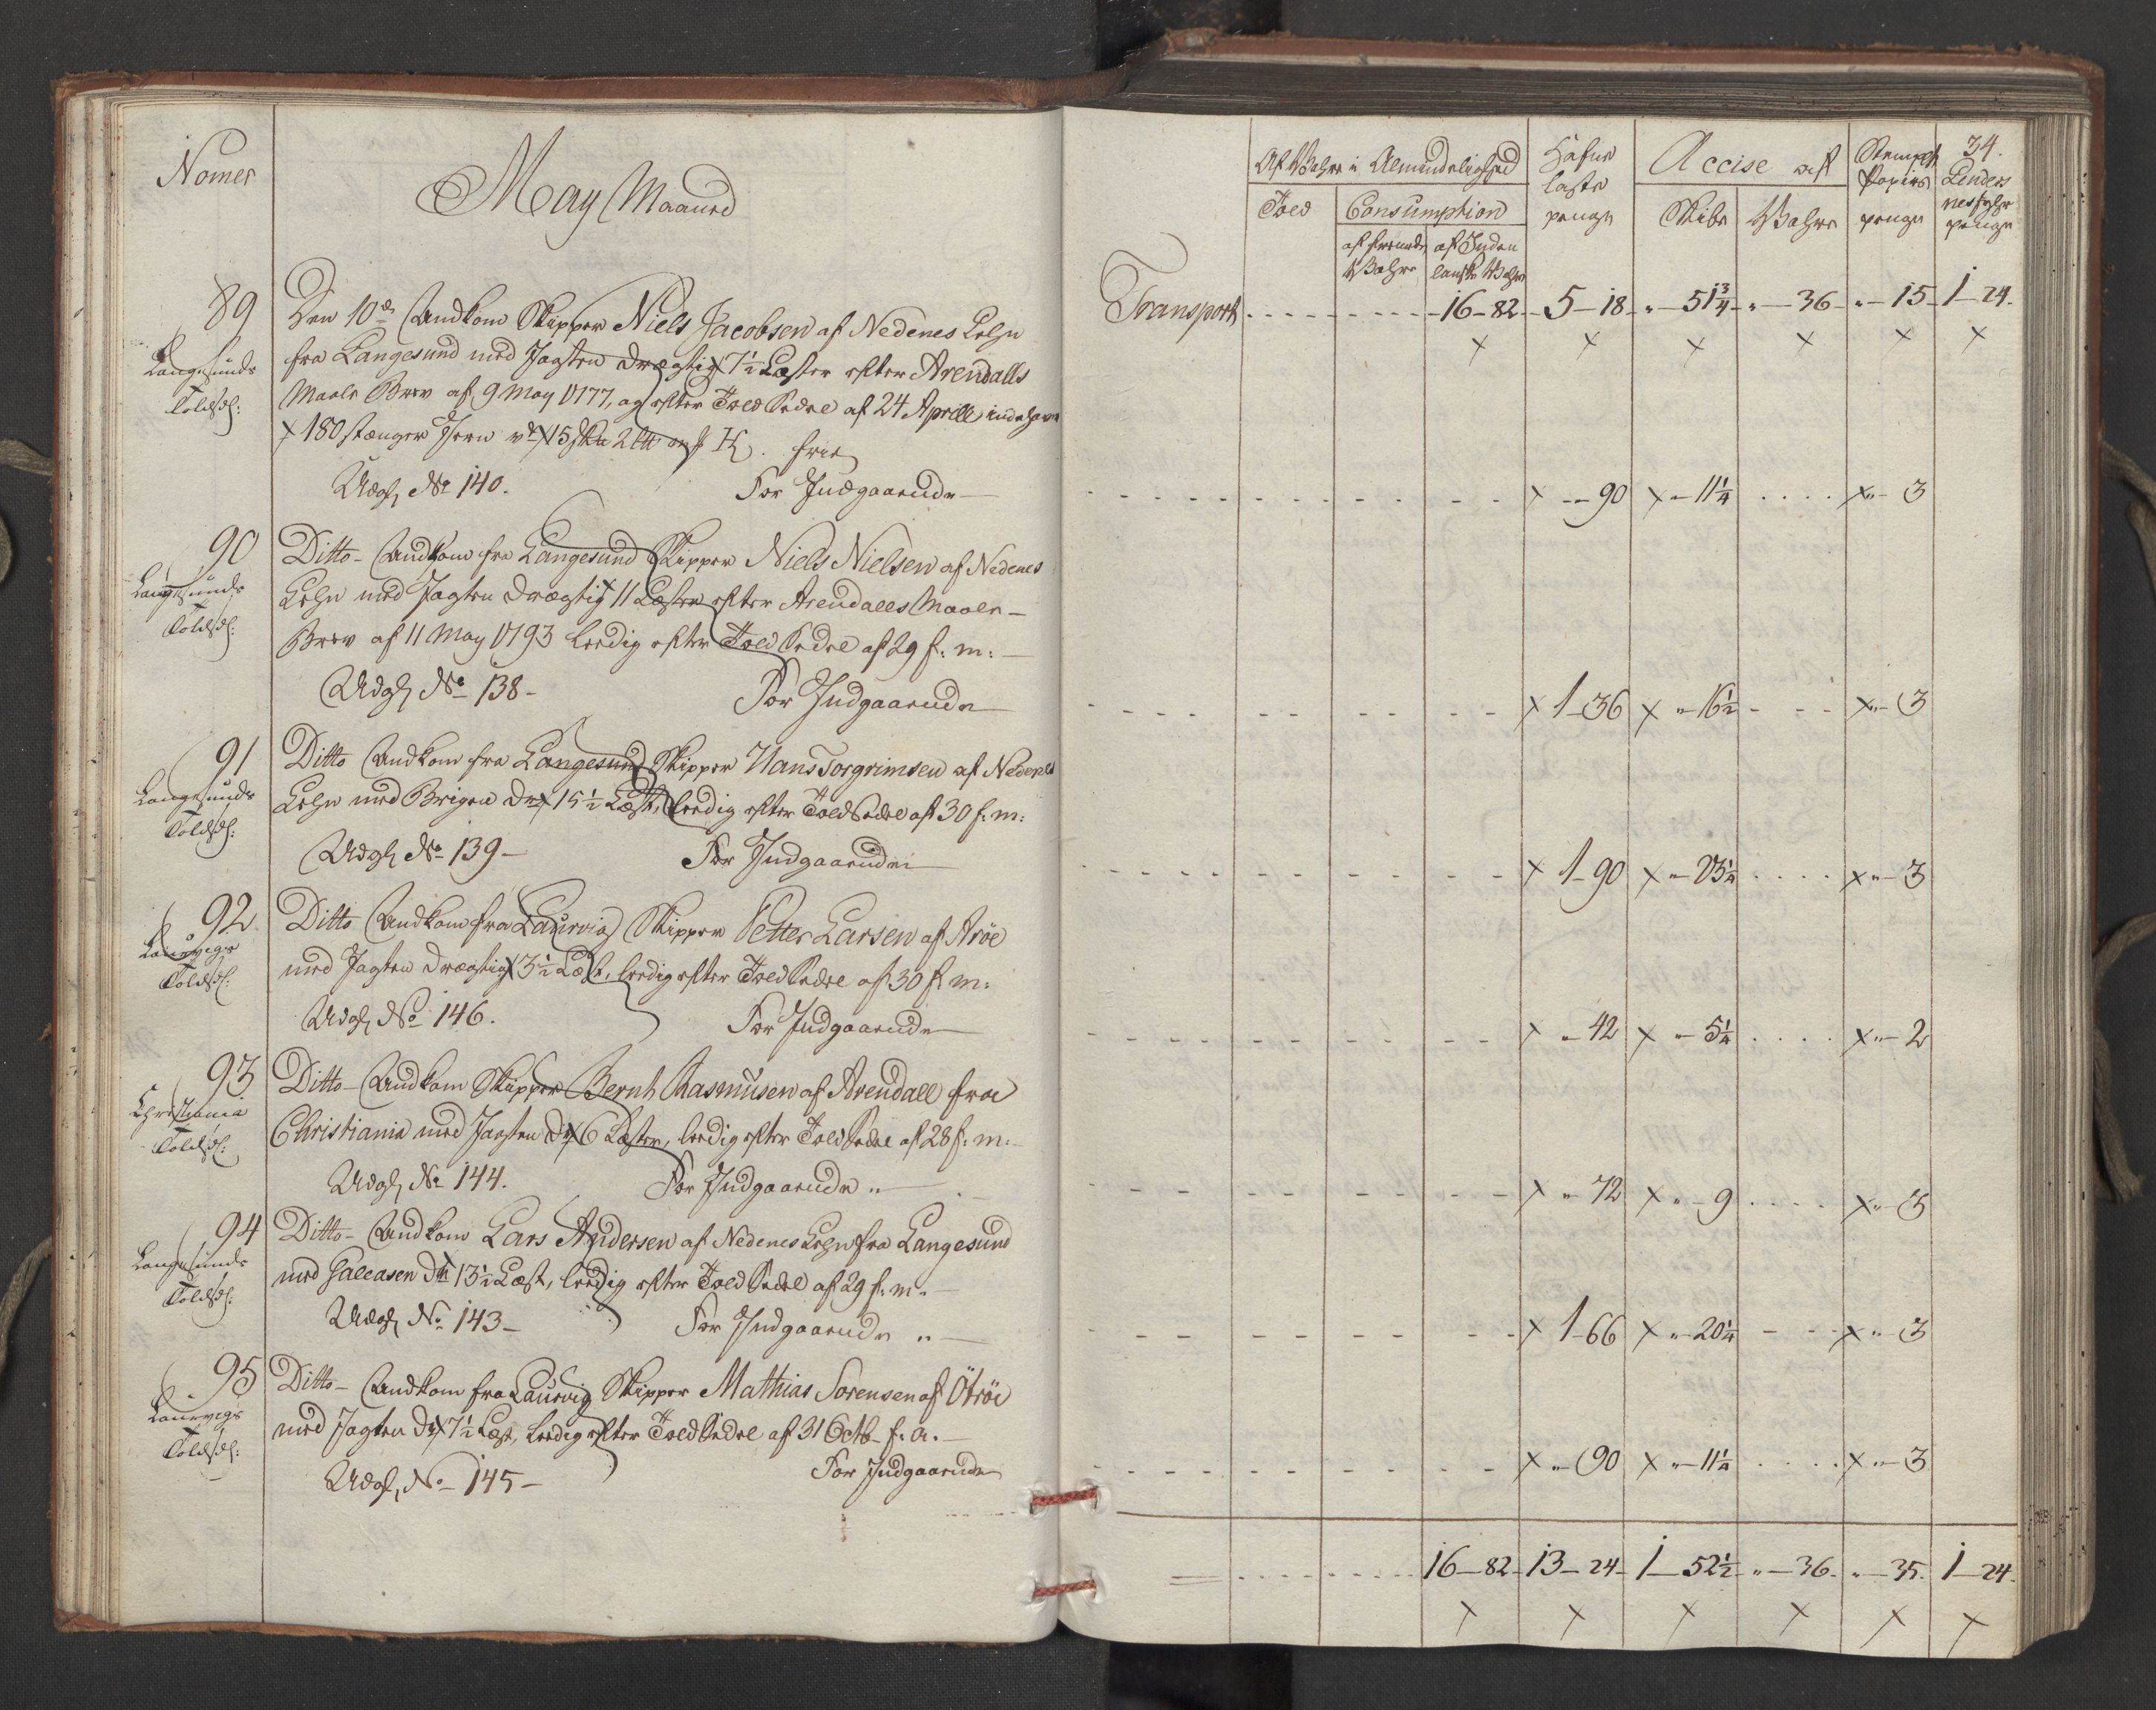 Nomer
May Maaned
89
Langesunds
Toldsdl:
Den 10de Andkom Skipper Niels Jacobsen af Nedenes Lehn
fra Langesund med Jagten drægtig 7½ Læster efter Arendalls
Maale Brev af 9 May 1777, og efter Told Sedel af 24 Aprill indehavende
180 stænger Jern
frie
Udg. No 140.
For Indgaaende
90
Langesunds
Toldsdl:
Ditto - Andkom fra Langesund Skipper Niels Nielsen af Nedenes
Lehn med Jagten drægtig 11 Læster efter Arendalls Maale-
Brev af 11 May 1793 leedig efter Told Sedel af 29 f: m:
Udg. No 138-
For Indgaaende
91
Langesunds
Toldsdl:
Ditto Andkom fra Langesund Skipper Hans Torgrimsen af Nedenes
Lehn med Brigen dr: 15½ Læst, leedig efter Told Sedel af 30 f: m:
Udg. No 139-
For Indgaaende
92
Laurvigs
Toldsdl:
Ditto Andkom fra Laurvig Skipper Petter Larsen af Aröe
med Jagten drægtig 3½ Læst, leedig efter Told Sedel af 30 f: m:
Udg. No 146.
For Indgaaende
93
Christiania
Toldsdl:
Ditto - Andkom Skipper Bernt Rasmusen af Arendall fra
Christiania med Jagten dr: 6 Læster, leedig efter Told Sedel af 28 f: m:
Udg. No 144.
For Indgaaende "
94
Langesunds
Toldsdl:
Ditto - Andkom Lars Andersen af Nedenes Lehn fra Langesund
med Galeasen dr: 13½ Læst, leedig efter Told Sedel af 29 f: m:
Udg. No 143-
For Indgaaende "
95
Laurvigs
Toldsdl:
Ditto - Andkom fra Laurvig Skipper Mathias Sörensen af Öbröe
med Jagten dr: 7½ Læst, leedig efter Told Sedel af 31 Octb. f: a:
Udg. No 145-
For Indgaaende
34.
Af Wahre i Almindelighed
Told
Consumption
af fremmede Wahre
af Inden landske Wahre
Hafne laste penge
Accise af
Skibe
Wahre
Stemplt Papirs penge
Lindes nes fyhr penge
Transport 16-82 5-18 "-51¾ "-36 "-15 1-24
x x x x x x
x "-90 x "-11¼ x "-3
x 1-36 x "-16½ x "-3
x 1-90 x "-23¼ x "-3
x "-42 x "-5¼ x "-2
x "-72 x "-9 x "-3
x 1-66 x "-20¼ x "-3
x "-90 x "-11¼ x "-3
16-82 13-24 1-52½ "-36 "-35 1-24
x x x x x x